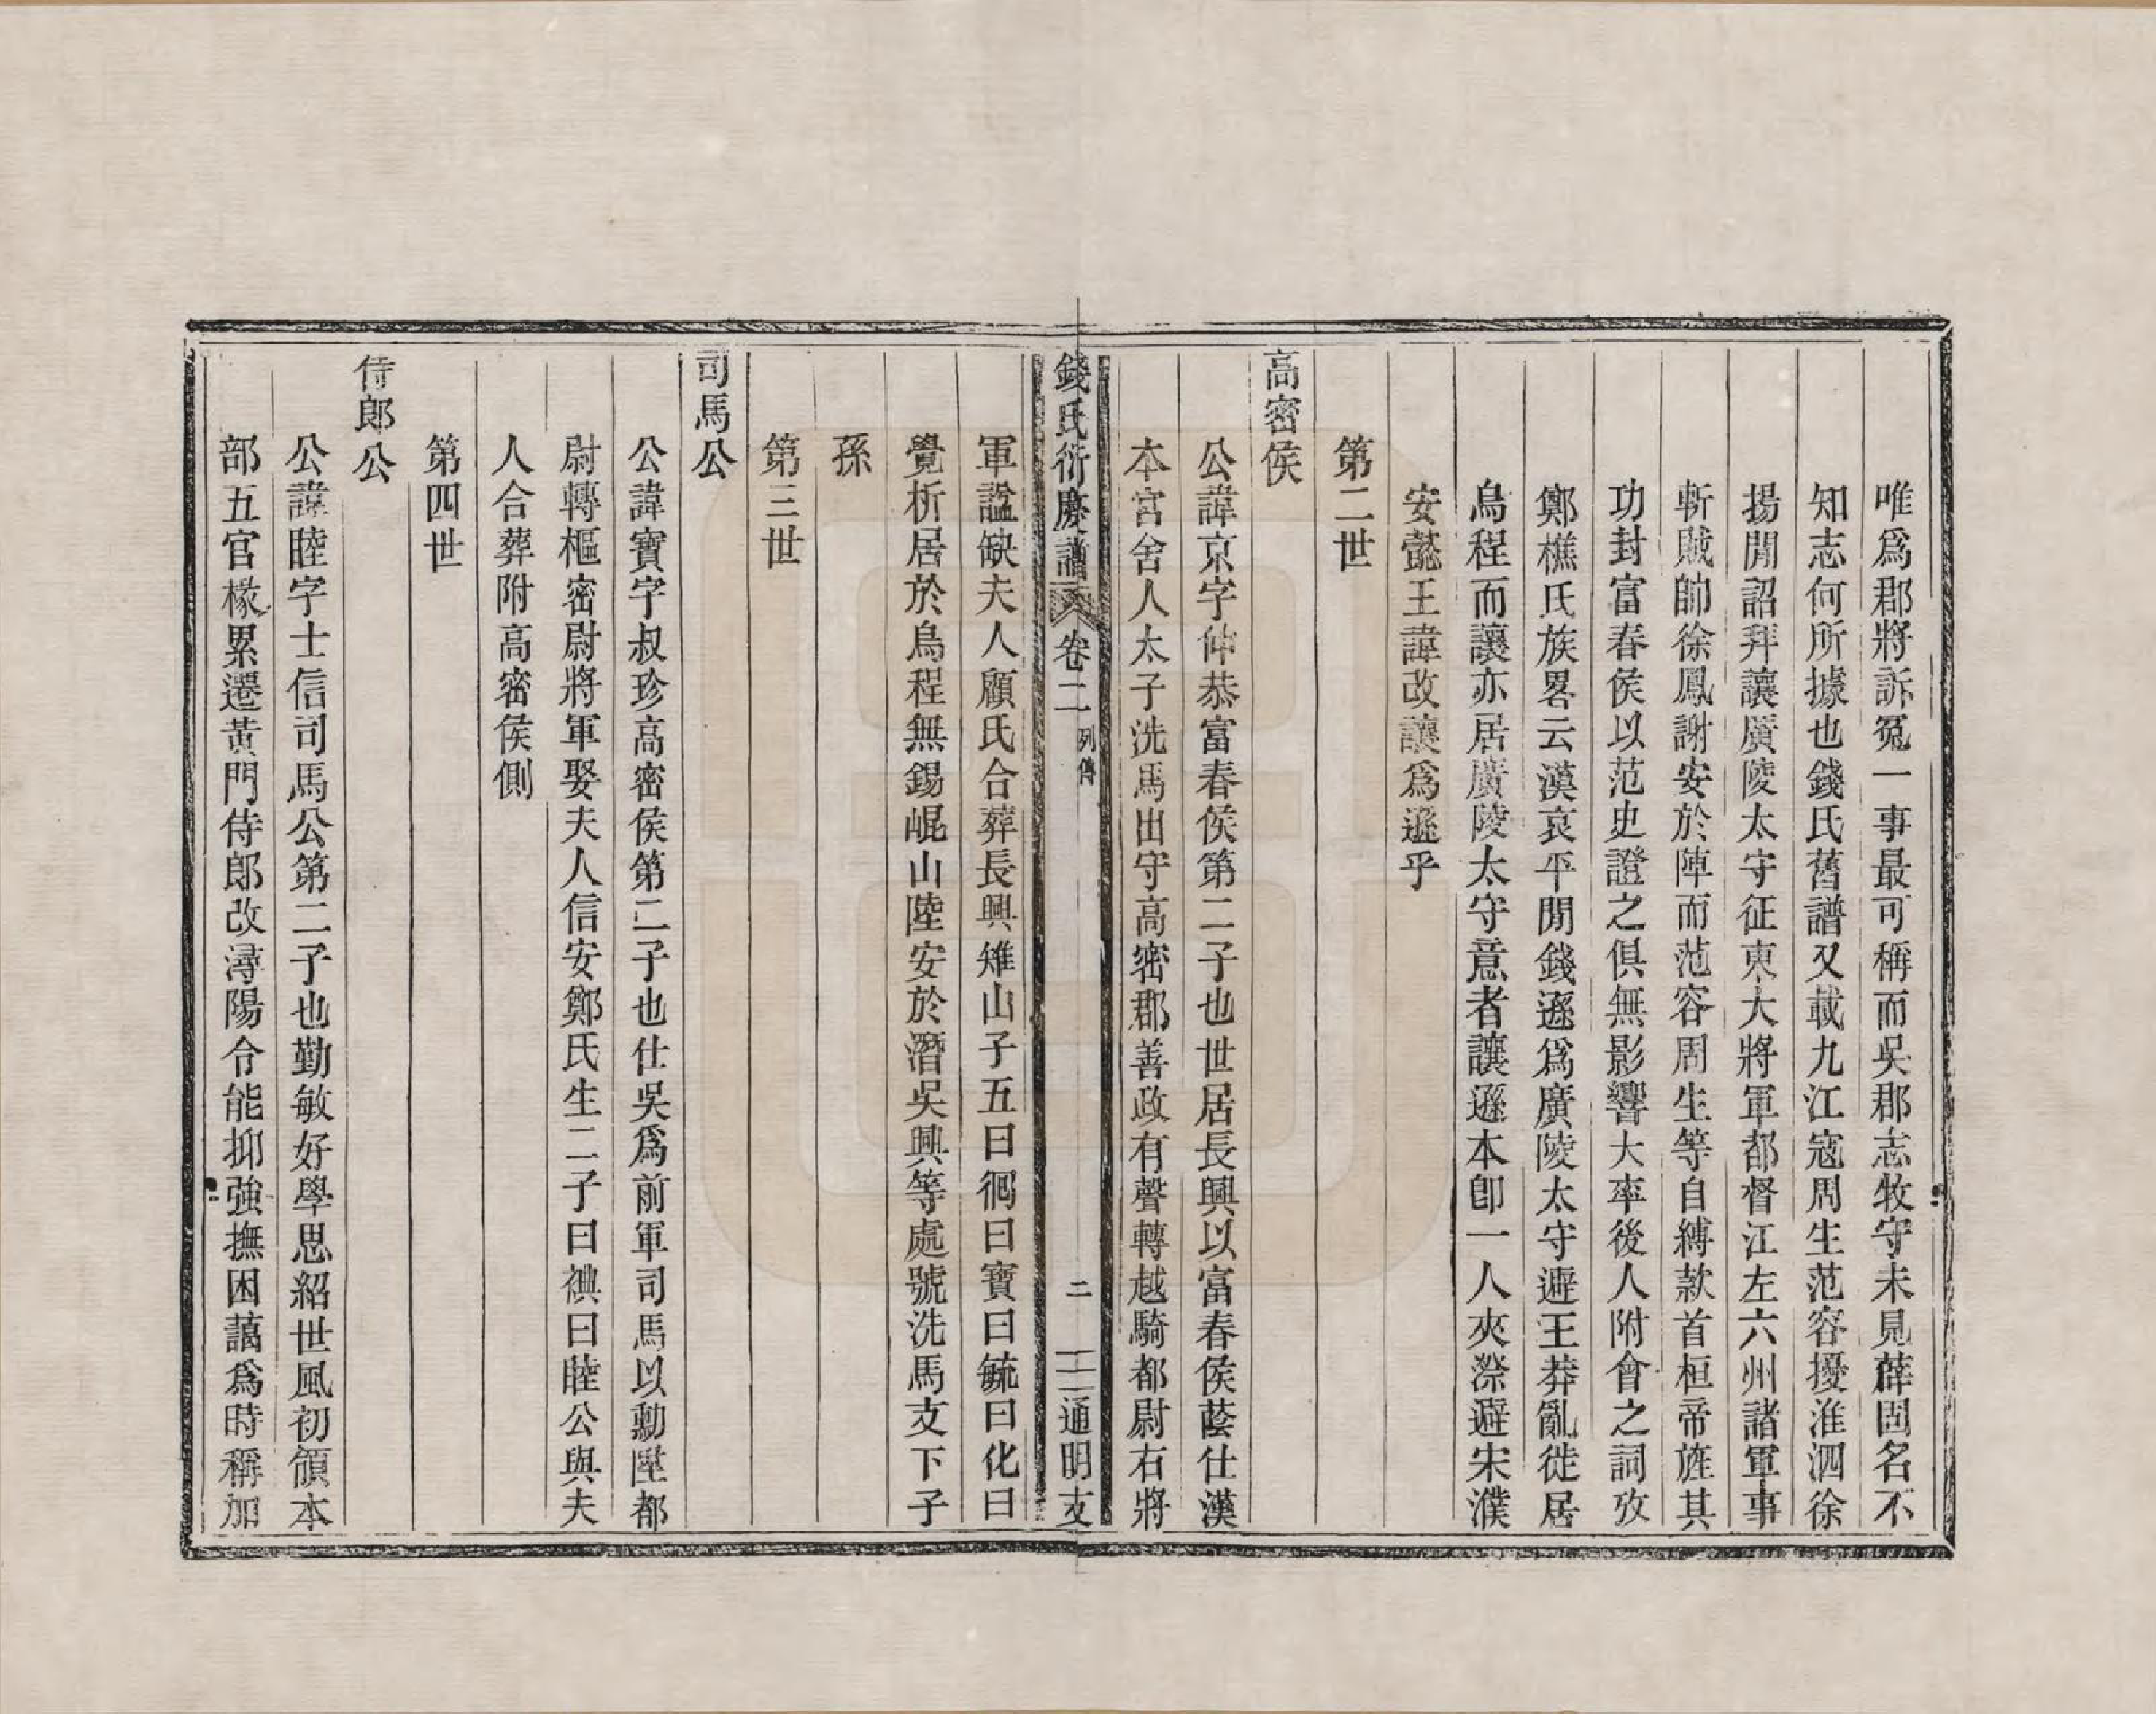 唯爲郡將訴冤一事最可稱而吳郡志牧守未見薛固名不
知志何所據也錢氏舊譜又載九江寇周生范容擾淮泗徐
揚間詔拜讓廣陵太守征東大將軍都督江左六州諸軍事
斬賊帥徐鳳謝安於陣而范容周生等自縛款首桓帝旌其
功封富春侯以范史證之俱無影響大率後人附會之詞攷
鄭樵氏族畧云漢哀平間錢遜爲廣陵太守避王莽亂徙居
烏程而讓亦居廣陵太守意者讓遜本卽一人夾漈避宋濮
安懿王諱改讓爲遜乎
第二世
高密侯
公諱京字仲恭富春侯第二子也世居長興以富春侯蔭仕漢
本宮舍人太子洗馬出守高密郡善政有聲轉越騎都尉右將
錢氏衍慶譜 卷二 列傳 二 通明支
軍諡缺夫人顧氏合葬長興雉山子五曰徊曰寶曰毓曰化曰
覺析居於烏程無錫崐山陸安於潛吳興等處號洗馬支下子
孫
第三世
司馬公
公諱寶字叔珍高密侯第二子也仕吳爲前軍司馬以勳陞都
尉轉樞密尉將軍娶夫人信安鄭氏生二子曰䄃曰睦公與夫
人合葬附高密侯側
第四世
侍郎公
公諱睦字士信司馬公第二子也勤敏好學思紹世風初領本
部五官椽累遷黃門侍郎改潯陽令能抑強撫困藹爲時稱加